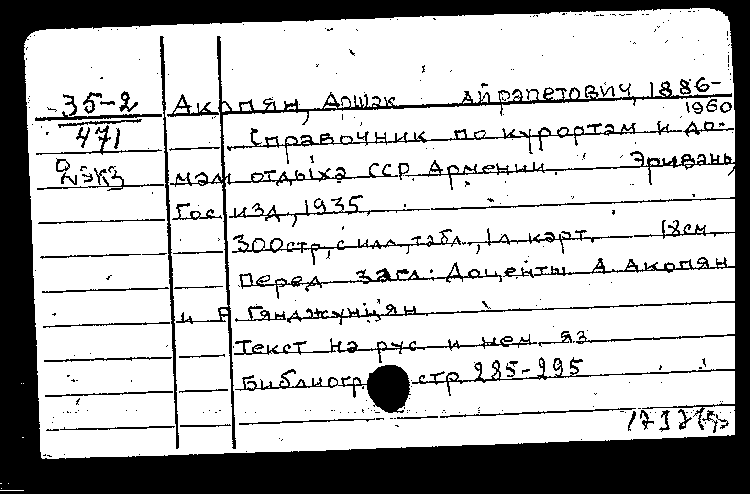 35-2
471
2экз
Акопян, Аршак Айрапетович, 1886-
1960
Справочник по курортам и до-
мам отдыха ССР Армении. Эривань,
Госизд, 1935.
300стр, с илл, табл., 1л карт. 18см.
Перед загл: Доценты А. Акопян
и Р. Гянджунцян
Текст на рус и нем. яз
Библиогр стр 285-295